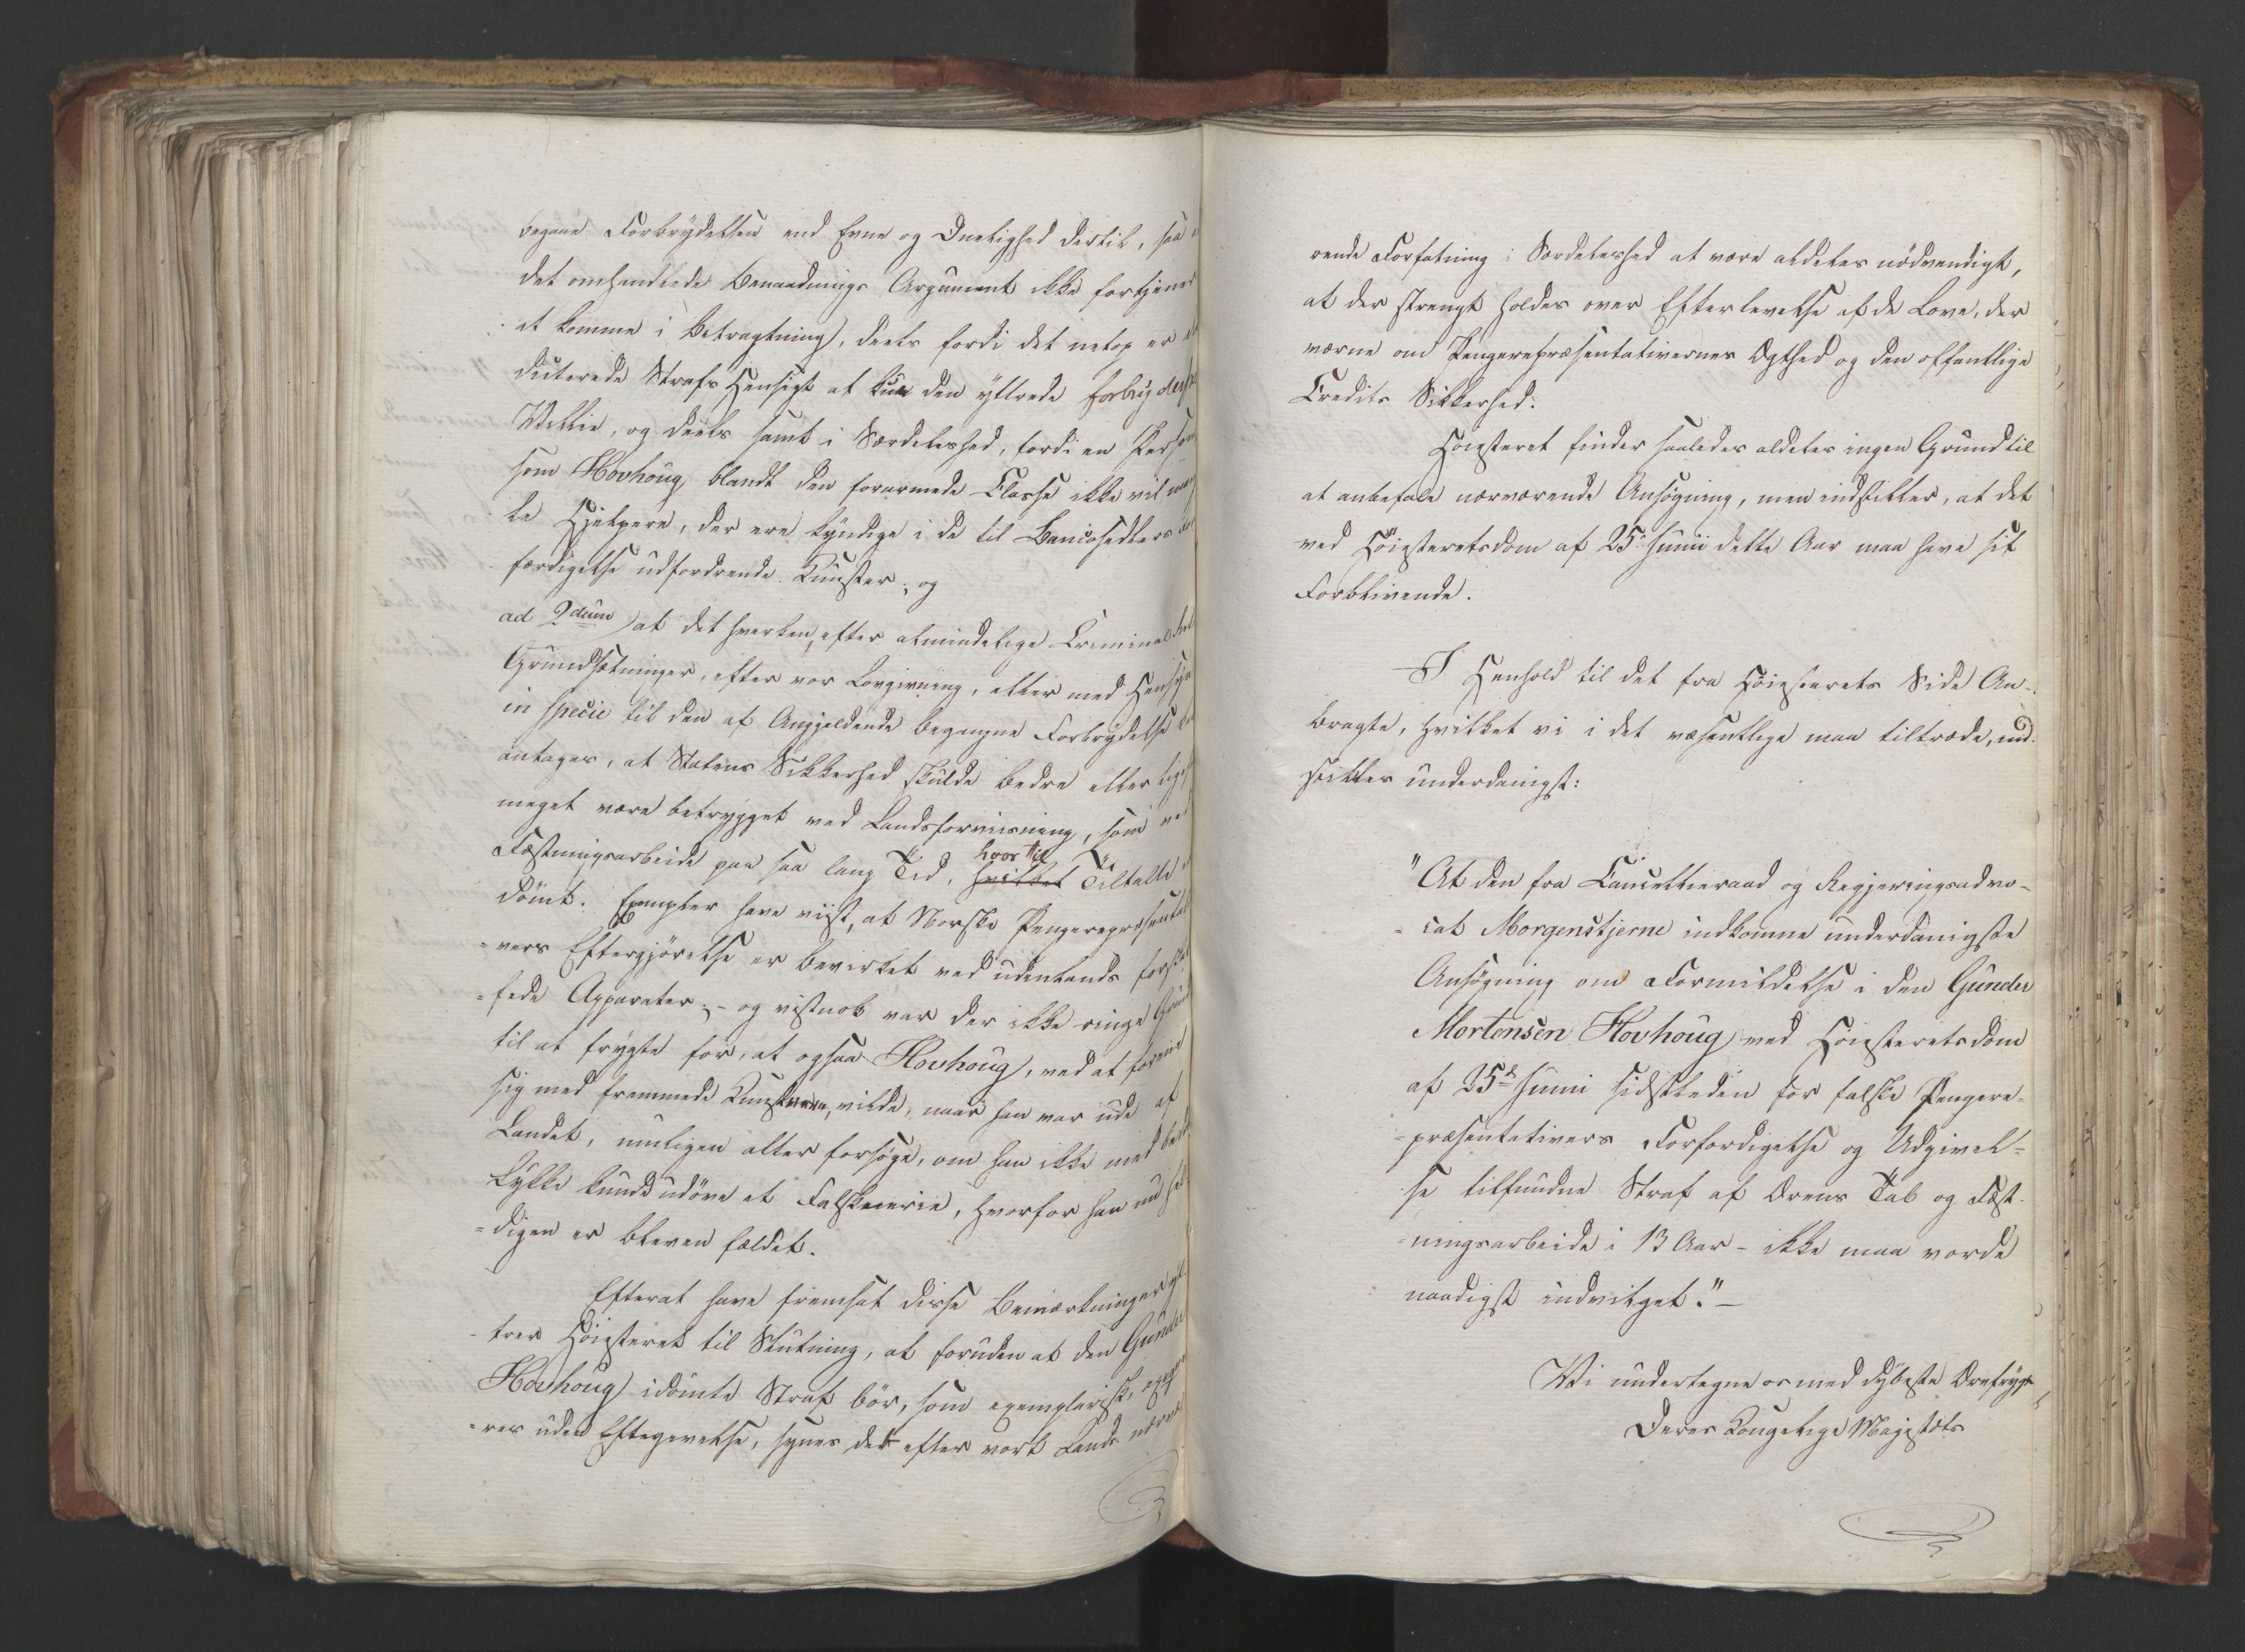 begaae Forbrydelsen end Evne og Duelighed dertil, saa
det omhandlede Benaadnings Argument ikke fortjener
at komme i Betragtning), deels fordi det netop er
dicterede Strafs Hensigt at kue den yttrede forbryderske
Villie, og deels samt i Særdeleshed, fordi en Person
som Hovhoug blandt den forarmede Classe ikke vil man-
le Hjelpere, der ere kyndige i de til Bancosedlers
færdigelse udfordrende Kunster; og
ad 2dum) at det hverken, efter almindelige Criminal
Grundsætninger, efter vor Lovgivning, eller med Hensyn
in specie til den af Angjeldende begangne Forbrydelse
antages, at Statens Sikkerhed skulde bedre eller lige
meget være betrygget ved Landsforviisning, som ved
Fæstningsarbeide paa saa lang Tid, hvilket hvortil Tiltalte
dömt. Exempler have viist, at Norske Pengerepræsentati-
-vers Eftergjörelse er bevirket ved udenlands forskaf-
-fede Apparater; - og vistnok var der ikke ringe Grund
til at frygte for, at ogsaa Hovhoug, ved at forene
sig med fremmede Kunstnere, vilde, naar han var ude af
Landet, muligen atter forsöge, om han ikke med bedre
Lykke kunde udöve et Falskneri, hvorfor han nu hel-
-digen er bleven fældet.
Efterat have fremsat disse Bemærkninger yt-
-trer Höiesteret til Slutning, at foruden at den Gunder
Hovhoug idömte Straf bör, som exemplarisk, exeqve-
-res uden Eftergivelse, synes det efter vort Lands nærvæ-
rende Forfatning i Særdeleshed at være aldeles nödvendigt,
at der strengt holdes over Efterlevelse af de Love, der
værne om Pengerepræsentativernes Ægthed og den offentlige
Credits Sikkerhed.
Höiesteret finder saaledes aldeles ingen Grund til
at anbefale nærværende Ansögning, men indstiller, at det
ved Höiesteretsdom af 25de Junii dette Aar maa have sit
Forblivende.
I Henhold til det fra Höiesterets Side An-
bragte, hvilket vi i det væsentlige maa tiltræde, ind-
stilles underdanigst:
"At den fra Cancellieraad og Regjeringsadvo-
-cat Morgenstjerne indkomne underdanigste
Ansögning om Formildelse i den Gunder
Mortensen Hovhoug ved Höiesteretsdom
af 25de Junii sidstleden for falske Pengere-
-præsentativers Forfærdigelse og Udgivel-
se tilfundne Straf af Ærens Tab og Fæst-
-ningsarbeide i 13 Aar - ikke maa vorde
naadigst indvilget." -
Vi undertegne os med dybeste Ærefrygt
Deres Kongelige Majestæts